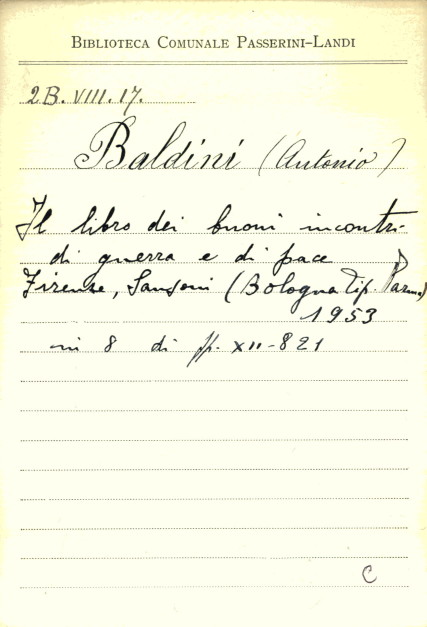 BIBLIOTECA COMUNALE PASSERINI-LANDI
2B. VIII. 17.
Baldini (Antonio)
Il libro dei buoni incontri
di guerra e di pace
Firenze, Sansoni (Bologna Tip. Parma)
1953
in 8 di pp. XII-821
C